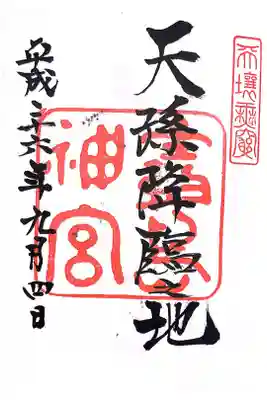 天壤無窮
天孫降臨之地
神宮
平成二六年九月四日